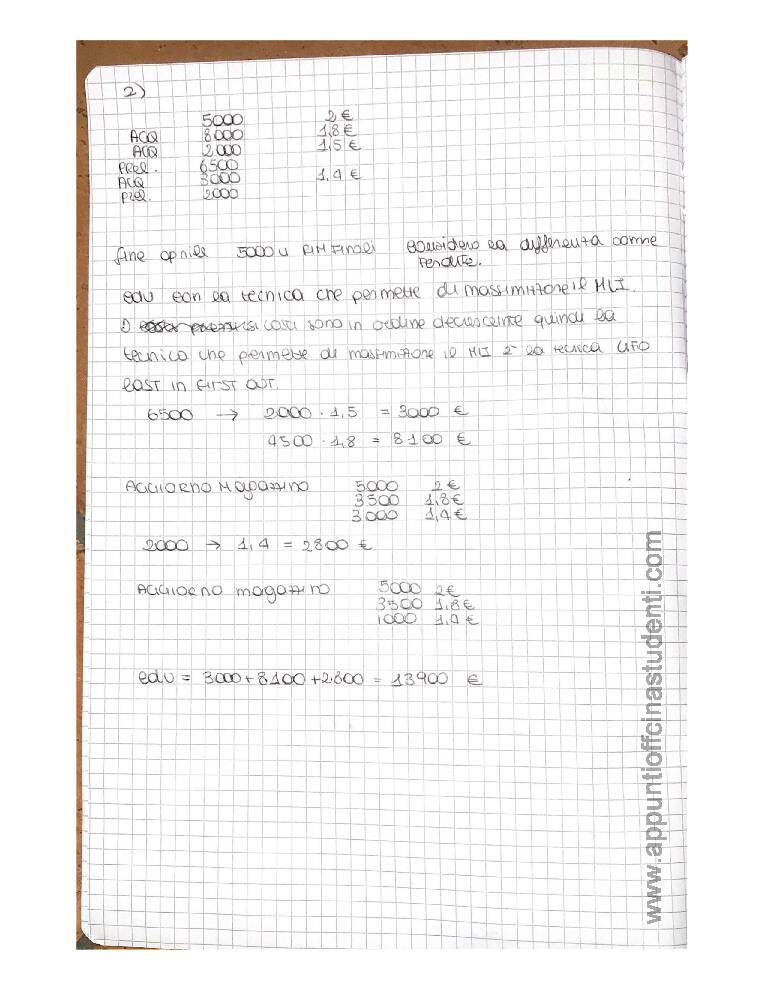 2)
5000 2 €
ACQ 8000 1,8 €
ACQ 2000 1,5 €
PREL. 6500
ACQ 3000 1,4 €
PREL. 2000
fine aprile 5000 u RIM Finali considero la differenza come
vendute.
CDV con la tecnica che permette di massimizzare il MLI.
i costi sono in ordine decrescente quindi la
tecnica che permette di massimizzare il MLI è la tecnica LIFO
LAST in FIRST OUT.
6500 → 2000 · 1,5 = 3000 €
4500 · 1,8 = 8100 €
AGGIORNO MAGAZZINO 5000 2 €
3500 1,8 €
3000 1,4 €
2000 → 1,4 = 2800 €
AGGIORNO magazzino 5000 2€
3500 1,8 €
1000 1,4 €
CDV = 3000 + 8100 + 2800 = 13900 €
www.appuntioffcinastudenti.com